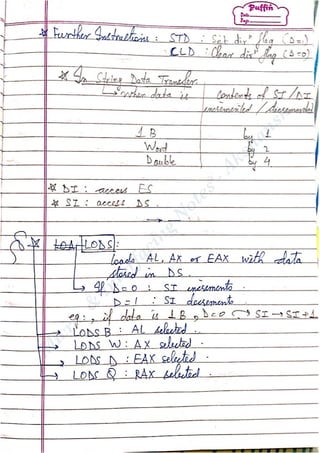 Puffin
Date
Page
* Further Instructions : STD : Set dirⁿ flag (D=1)
CLD : Clear dirⁿ flag (D=0)
* In String Data Transfer
↳ when data is
Contents of SI / DI
incremented / decremented
1 B by 1
Word by 2
Double by 4
* DI : access ES
* SI : access DS.
* LOA LODS :
loads AL, AX or EAX with data
stored in DS.
→ If D=0 : SI increments.
D=1 : SI decrements.
eg:, if data is 1B, D=0 → SI → SI+1
→ LODS B : AL selected.
→ LODS W : AX selected.
→ LODS D : EAX selected.
→ LODS Q : RAX selected.